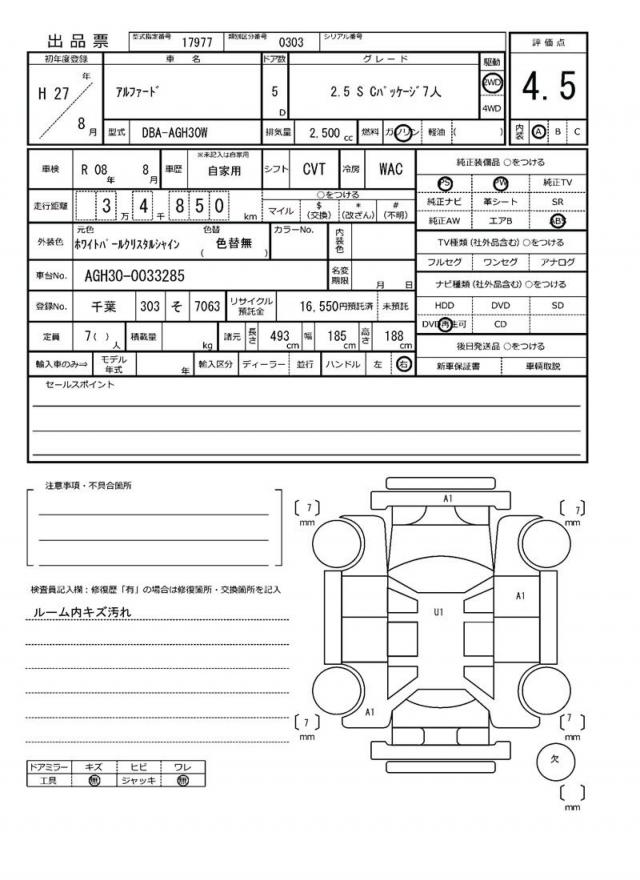 出品票
型式指定番号 17977 類別区分番号 0303 シリアル番号
初年度登録 車名 ドア数 グレード 駆動 評価点
H 27 年 8 月 アルファード 5 D 2.5 S Cパッケージ7人 2WD 4WD 4.5
型式 DBA-AGH30W 排気量 2,500 cc 燃料 ガソリン 軽油 ( ) 内装 A B C
車検 R 08 年 8 月 車歴 ※未記入は自家用 自家用 シフト CVT 冷房 WAC
純正装備品 ○をつける
PS PW 純正TV
走行距離 3 万 4 千 8 5 0 km ○をつける
マイル $ (交換) * (改ざん) # (不明)
純正ナビ 革シート SR
純正AW エアB ABS
外装色 元色 ホワイトパールクリスタルシャイン 色替 ( 色替無 ) カラーNo. 内装色
TV種類 (社外品含む) ○をつける
フルセグ ワンセグ アナログ
車台No. AGH30-0033285 名変期限 月 日
ナビ種類 (社外品含む) ○をつける
登録No. 千葉 303 そ 7063 リサイクル預託金 16,550円預託済 未預託
HDD DVD SD
DVD再生可 CD
定員 7( ) 人 積載量 kg 諸元 長さ 493 cm 幅 185 cm 高さ 188 cm
後日発送品 ○をつける
輸入車のみ⇒ モデル年式 年 輸入区分 ディーラー 並行 ハンドル 左 右
新車保証書 車輌取説
セールスポイント
注意事項・不具合箇所
検査員記入欄：修復歴「有」の場合は修復箇所・交換箇所を記入
ルーム内キズ汚れ
[ 7 ] mm A1 [ 7 ] mm
A1
U1
A1
[ 7 ] mm [ 7 ] mm
欠
[ ] mm
ドアミラー キズ ヒビ ワレ
工具 無 ジャッキ 無